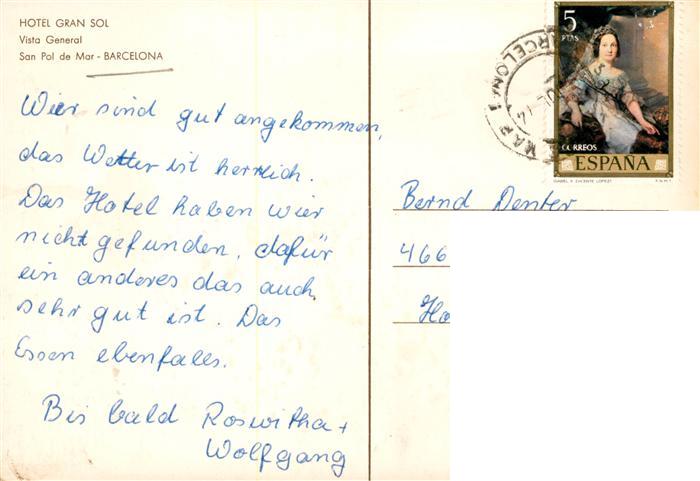 HOTEL GRAN SOL
Vista General
San Pol de Mar - BARCELONA
Wier sind gut angekommen,
das Wetter ist herrlich.
Das Hotel haben wier
nicht gefunden, dafür
ein anderes das auch
sehr gut ist. Das
Essen ebenfalls.
Bis bald Roswitha +
Wolfgang
5
PTAS
CORREOS
ESPAÑA
Bernd Denter
466
Ho